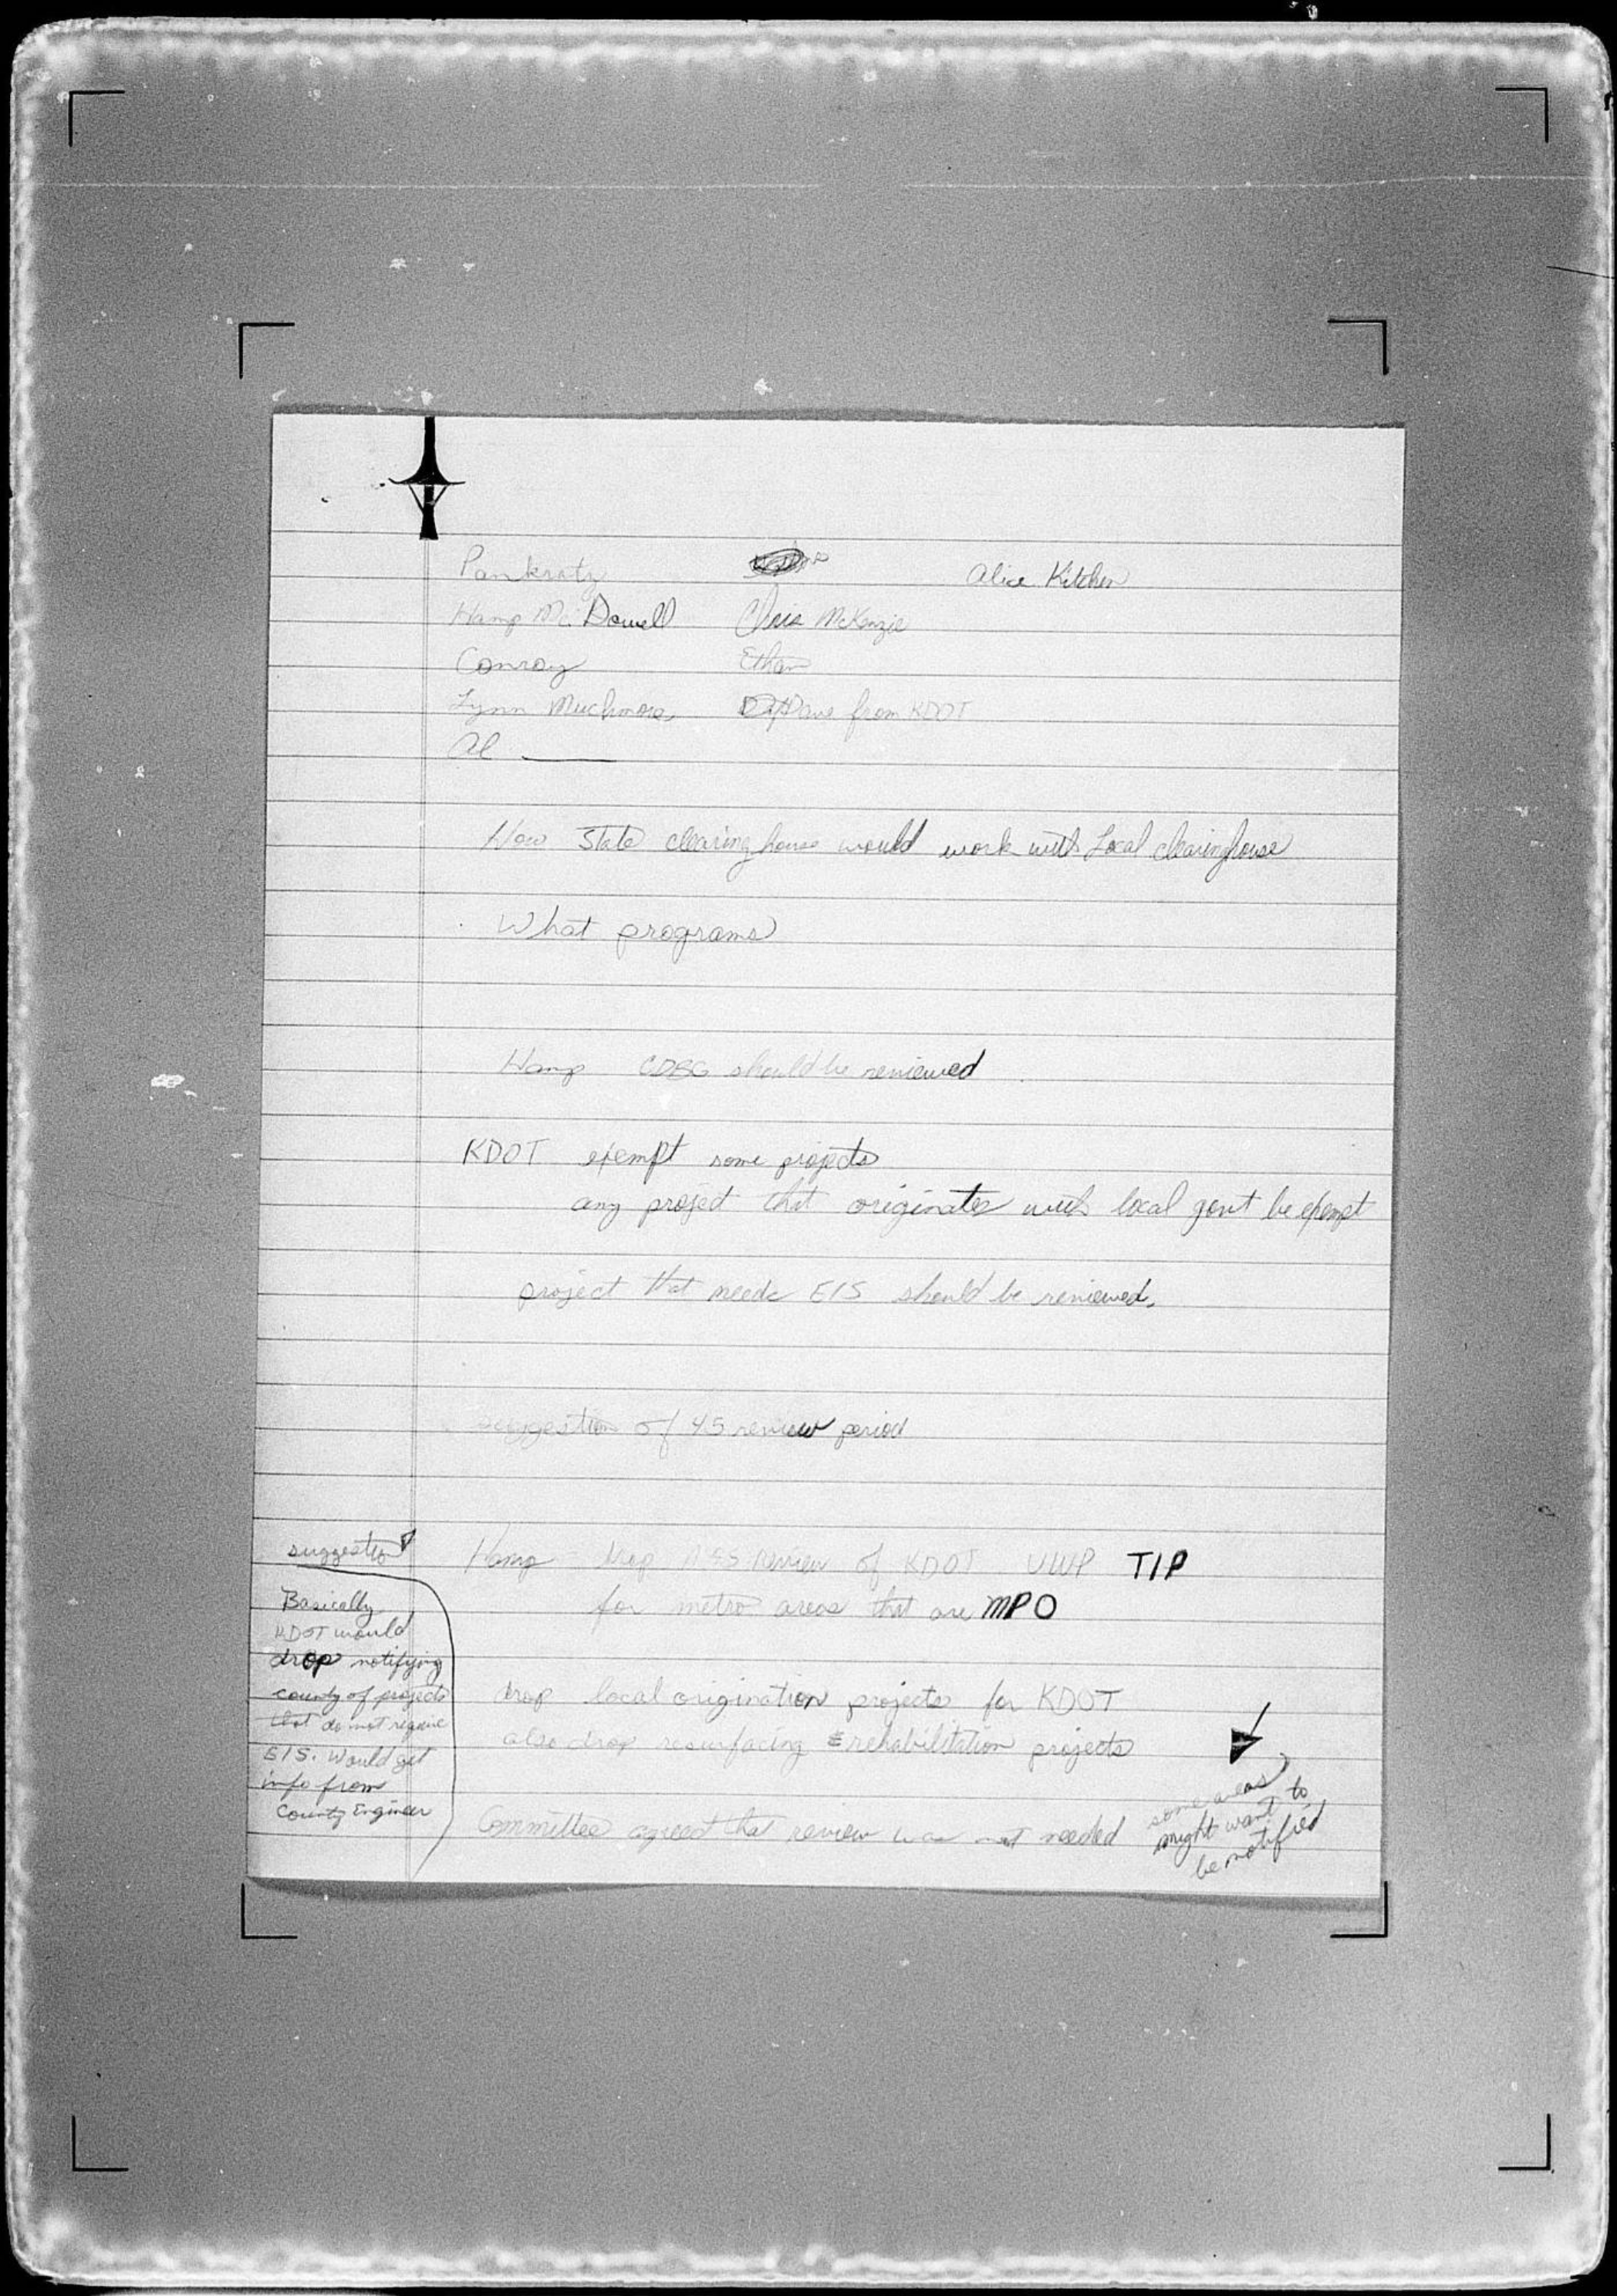 Pankratz Alice Kitchen
Hamp McDowell Chris McKenzie
Conroy Ethan
Lynn Muchmore, from KDOT
Al ____
How State clearinghouse would work with Local clearinghouse
What programs
Hamp CDBG should be reviewed
KDOT exempt some projects
any project that originates with local govt be exempt
project that needs EIS should be reviewed.
suggestion of 45 review period
Hamp drop review of KDOT UWP TIP
for metro areas that are MPO
suggestion
Basically
KDOT would
drop notifying
county of projects
that do not require
EIS. Would get
info from
County Engineer
drop local origination projects for KDOT
also drop resurfacing & rehabilitation projects
Committee agreed that review was not needed
some areas
might want to
be notified